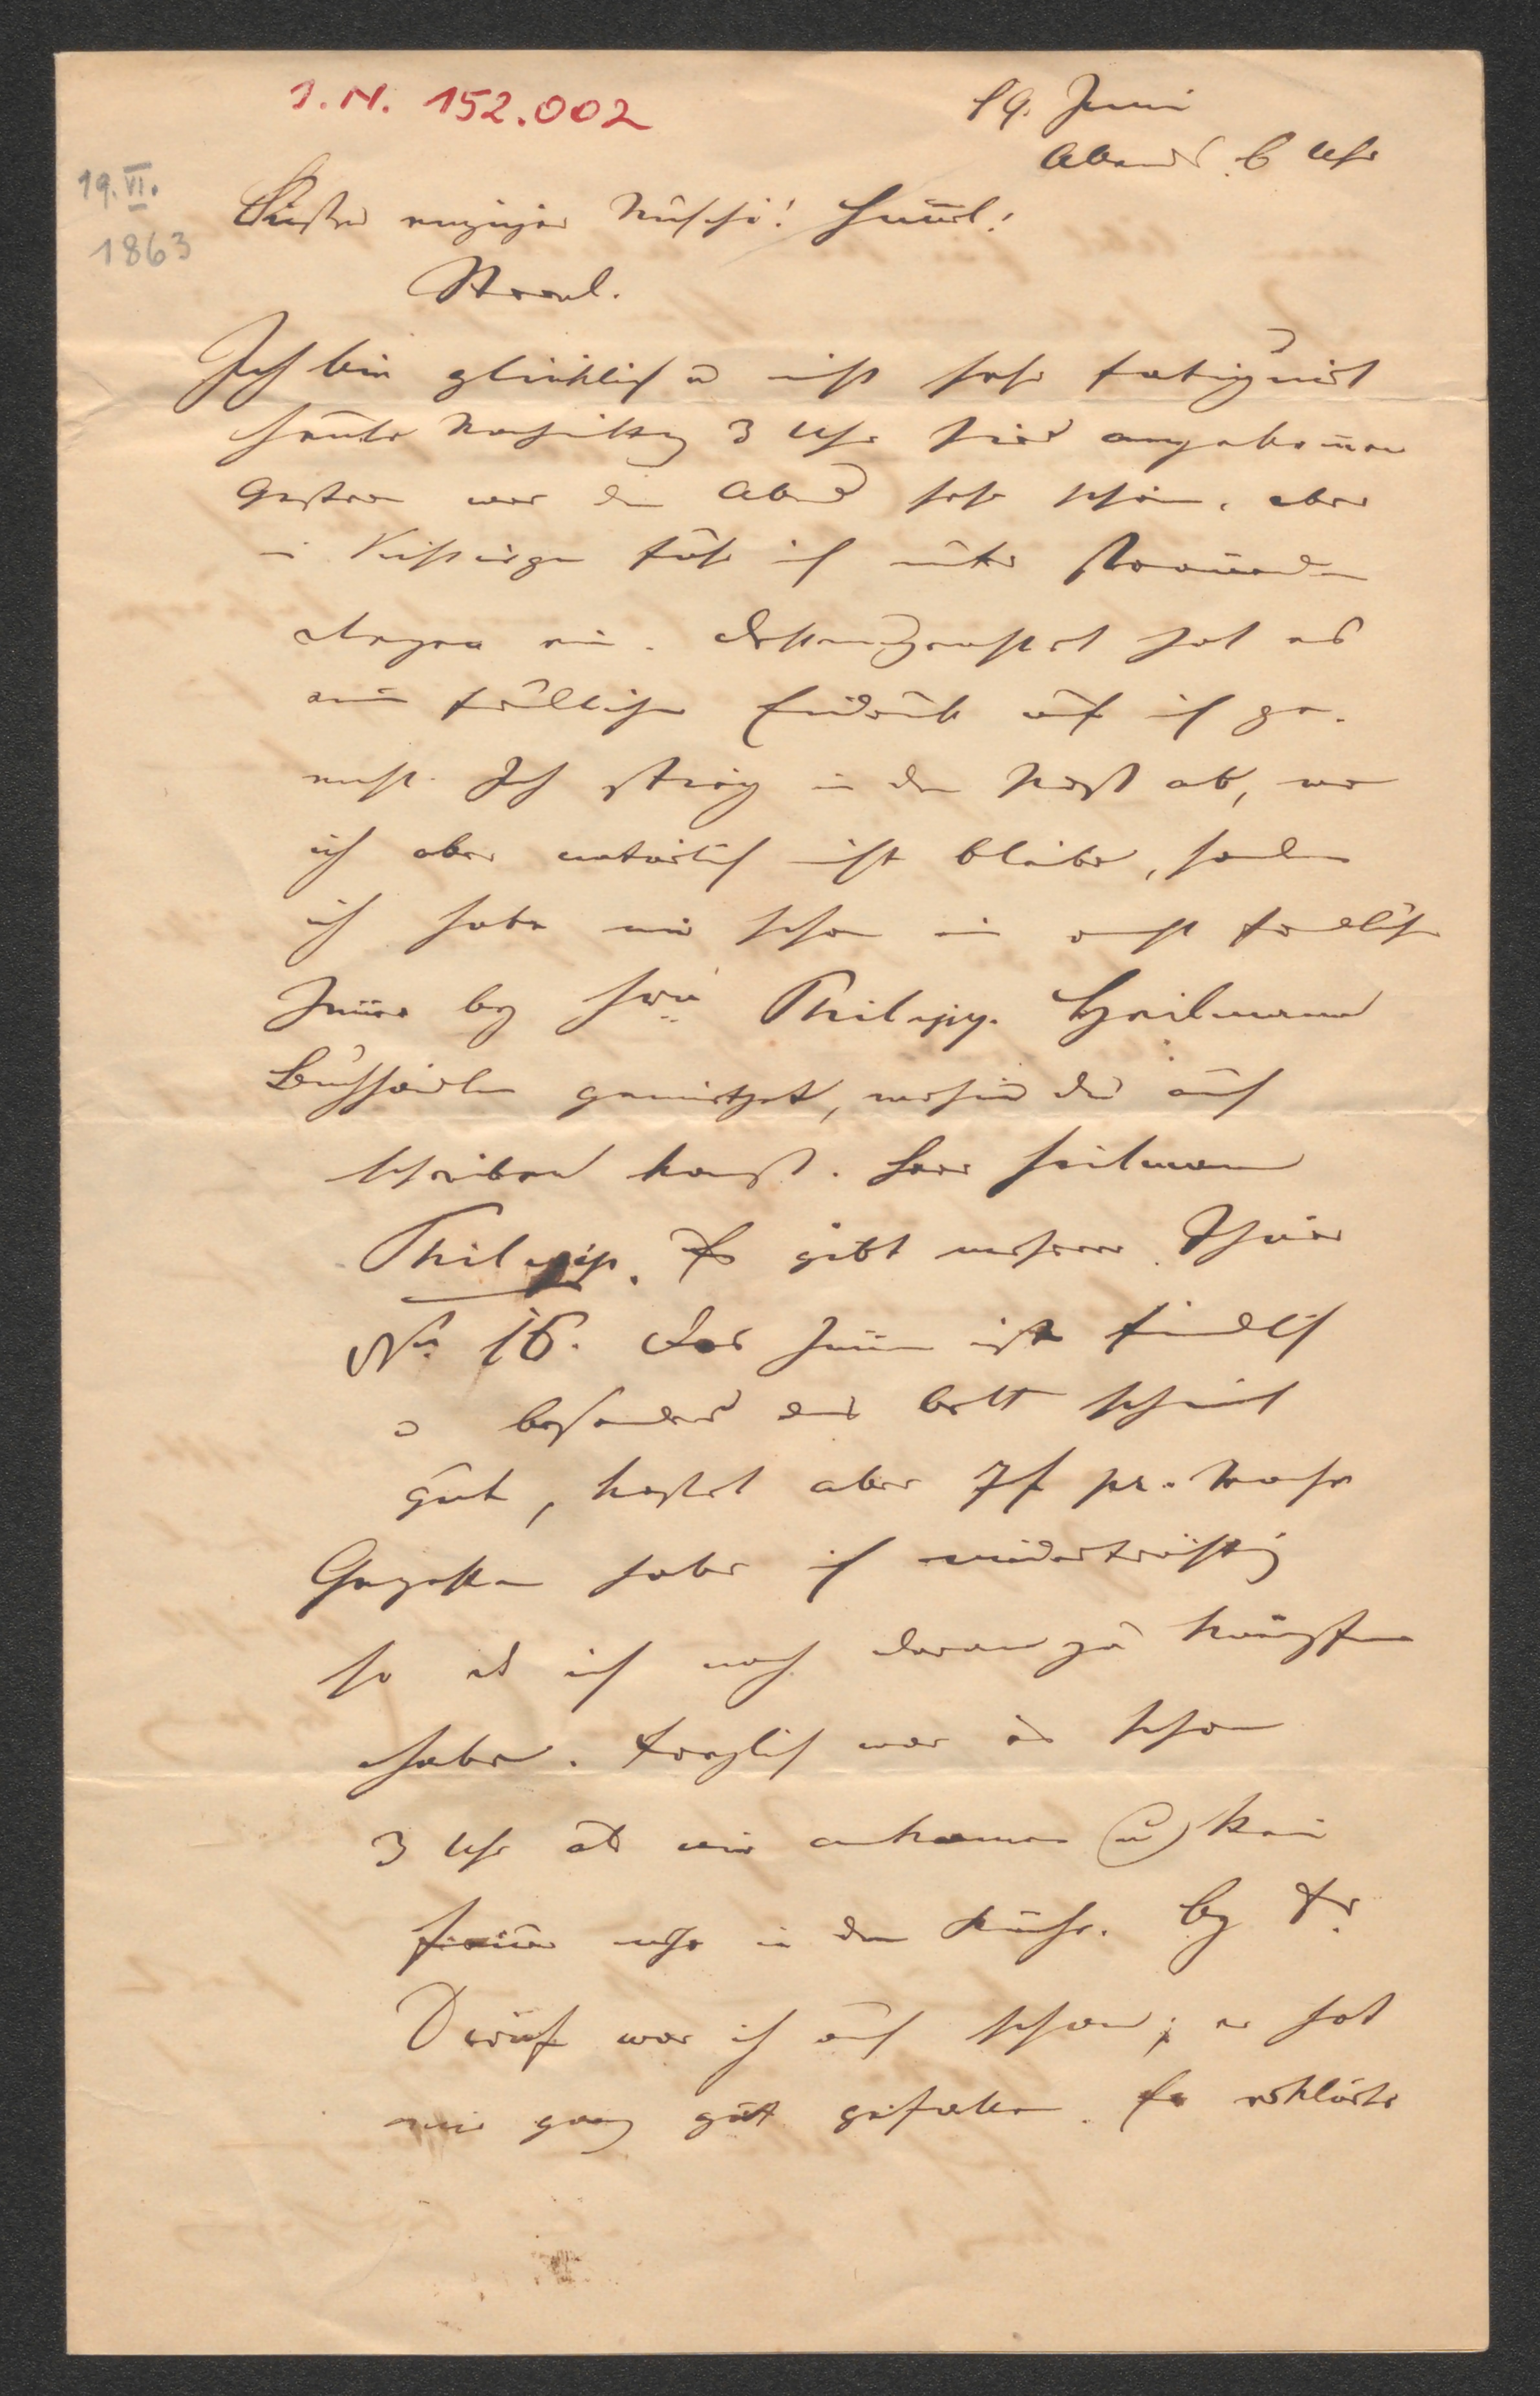 I.N. 152.002
19. Juni
Abends 6 Uhr
19. VI.
1863
Liebster einziger Muschi! Hund!
Ich bin glücklich u nicht sehr fatiguirt
heute Nachmittag 3 Uhr hier angekommen
Gestern war der Abend sehr schön, aber
in Kissingen fuhr ich unter strömendem
Regen ein. Dessenungeachtet hat es
einen freundlichen Eindruck auf mich ge-
macht. Ich stieg in der Post ab, wo
ich aber natürlich nicht bleibe, sondern
ich habe mir schon ein recht freundliches
Zimmer bey Herrn Philipp. Heilmann
gemiethet, wohin du auch
schreiben kannst. Herr Heilmann
Philipp. Es gibt mehrere Thüre
No 16. Das Zimmer ist freundlich
u besonders das Bett scheint
gut, kostet aber 7 f pr. Woche
Gegessen habe ich niederträchtig
so daß ich noch daran zu kämpfen
habe. Freylich war es schon
3 Uhr als wir ankamen (u) kein
Feuer mehr in der Küche. Bey Dr
war ich auch schon; er hat
mir ganz gut gefallen. Er erklärte